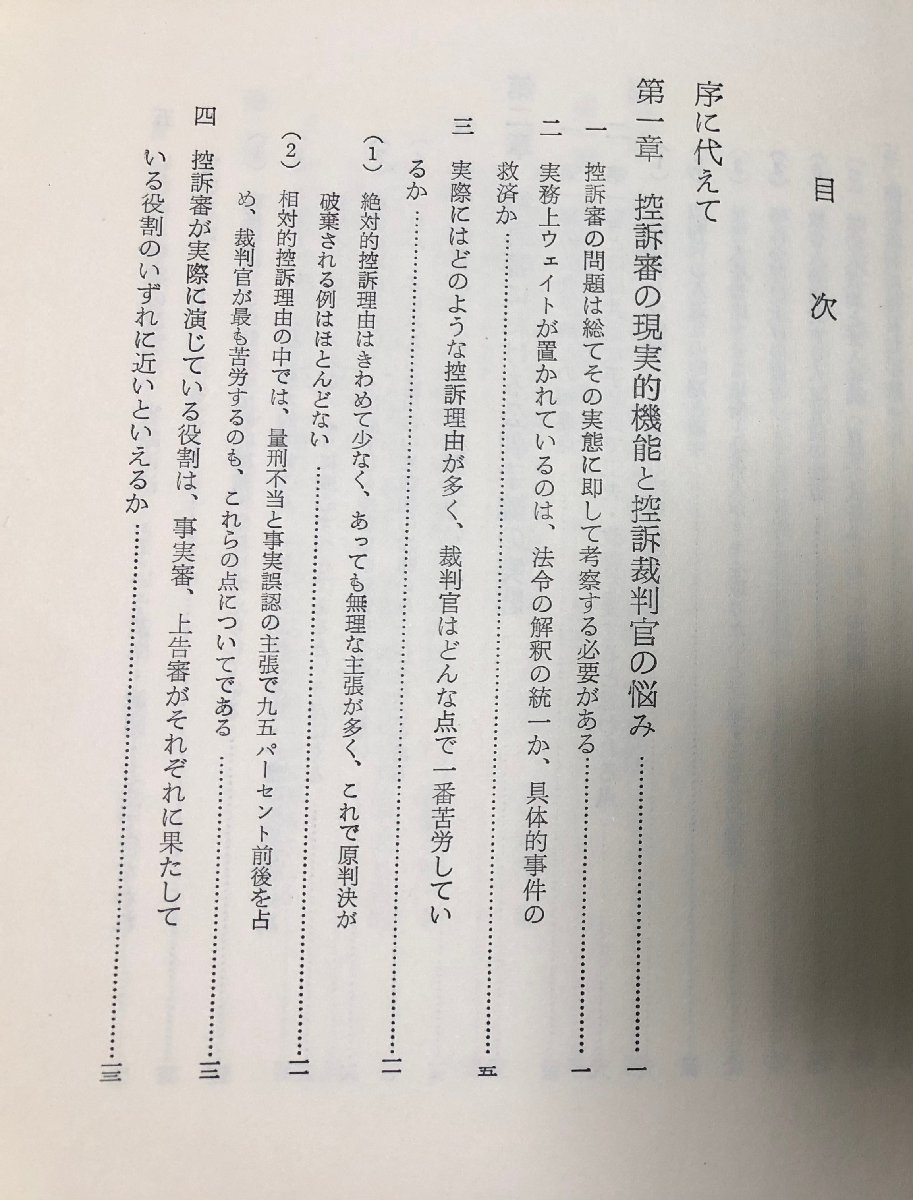 目次
序に代えて
第一章　控訴審の現実的機能と控訴裁判官の悩み……………………一
一　控訴審の問題は総てその実態に即して考察する必要がある……………………一
二　実務上ウェイトが置かれているのは、法令の解釈の統一か、具体的事件の
救済か……………………五
三　実際にはどのような控訴理由が多く、裁判官はどんな点で一番苦労してい
るか……………………一一
（1）　絶対的控訴理由はきわめて少なく、あっても無理な主張が多く、これで原判決が
破棄される例はほとんどない……………………一一
（2）　相対的控訴理由の中では、量刑不当と事実誤認の主張で九五パーセント前後を占
め、裁判官が最も苦労するのも、これらの点についてである……………………一二
四　控訴審が実際に演じている役割は、事実審、上告審がそれぞれに果たして
いる役割のいずれに近いといえるか……………………一三